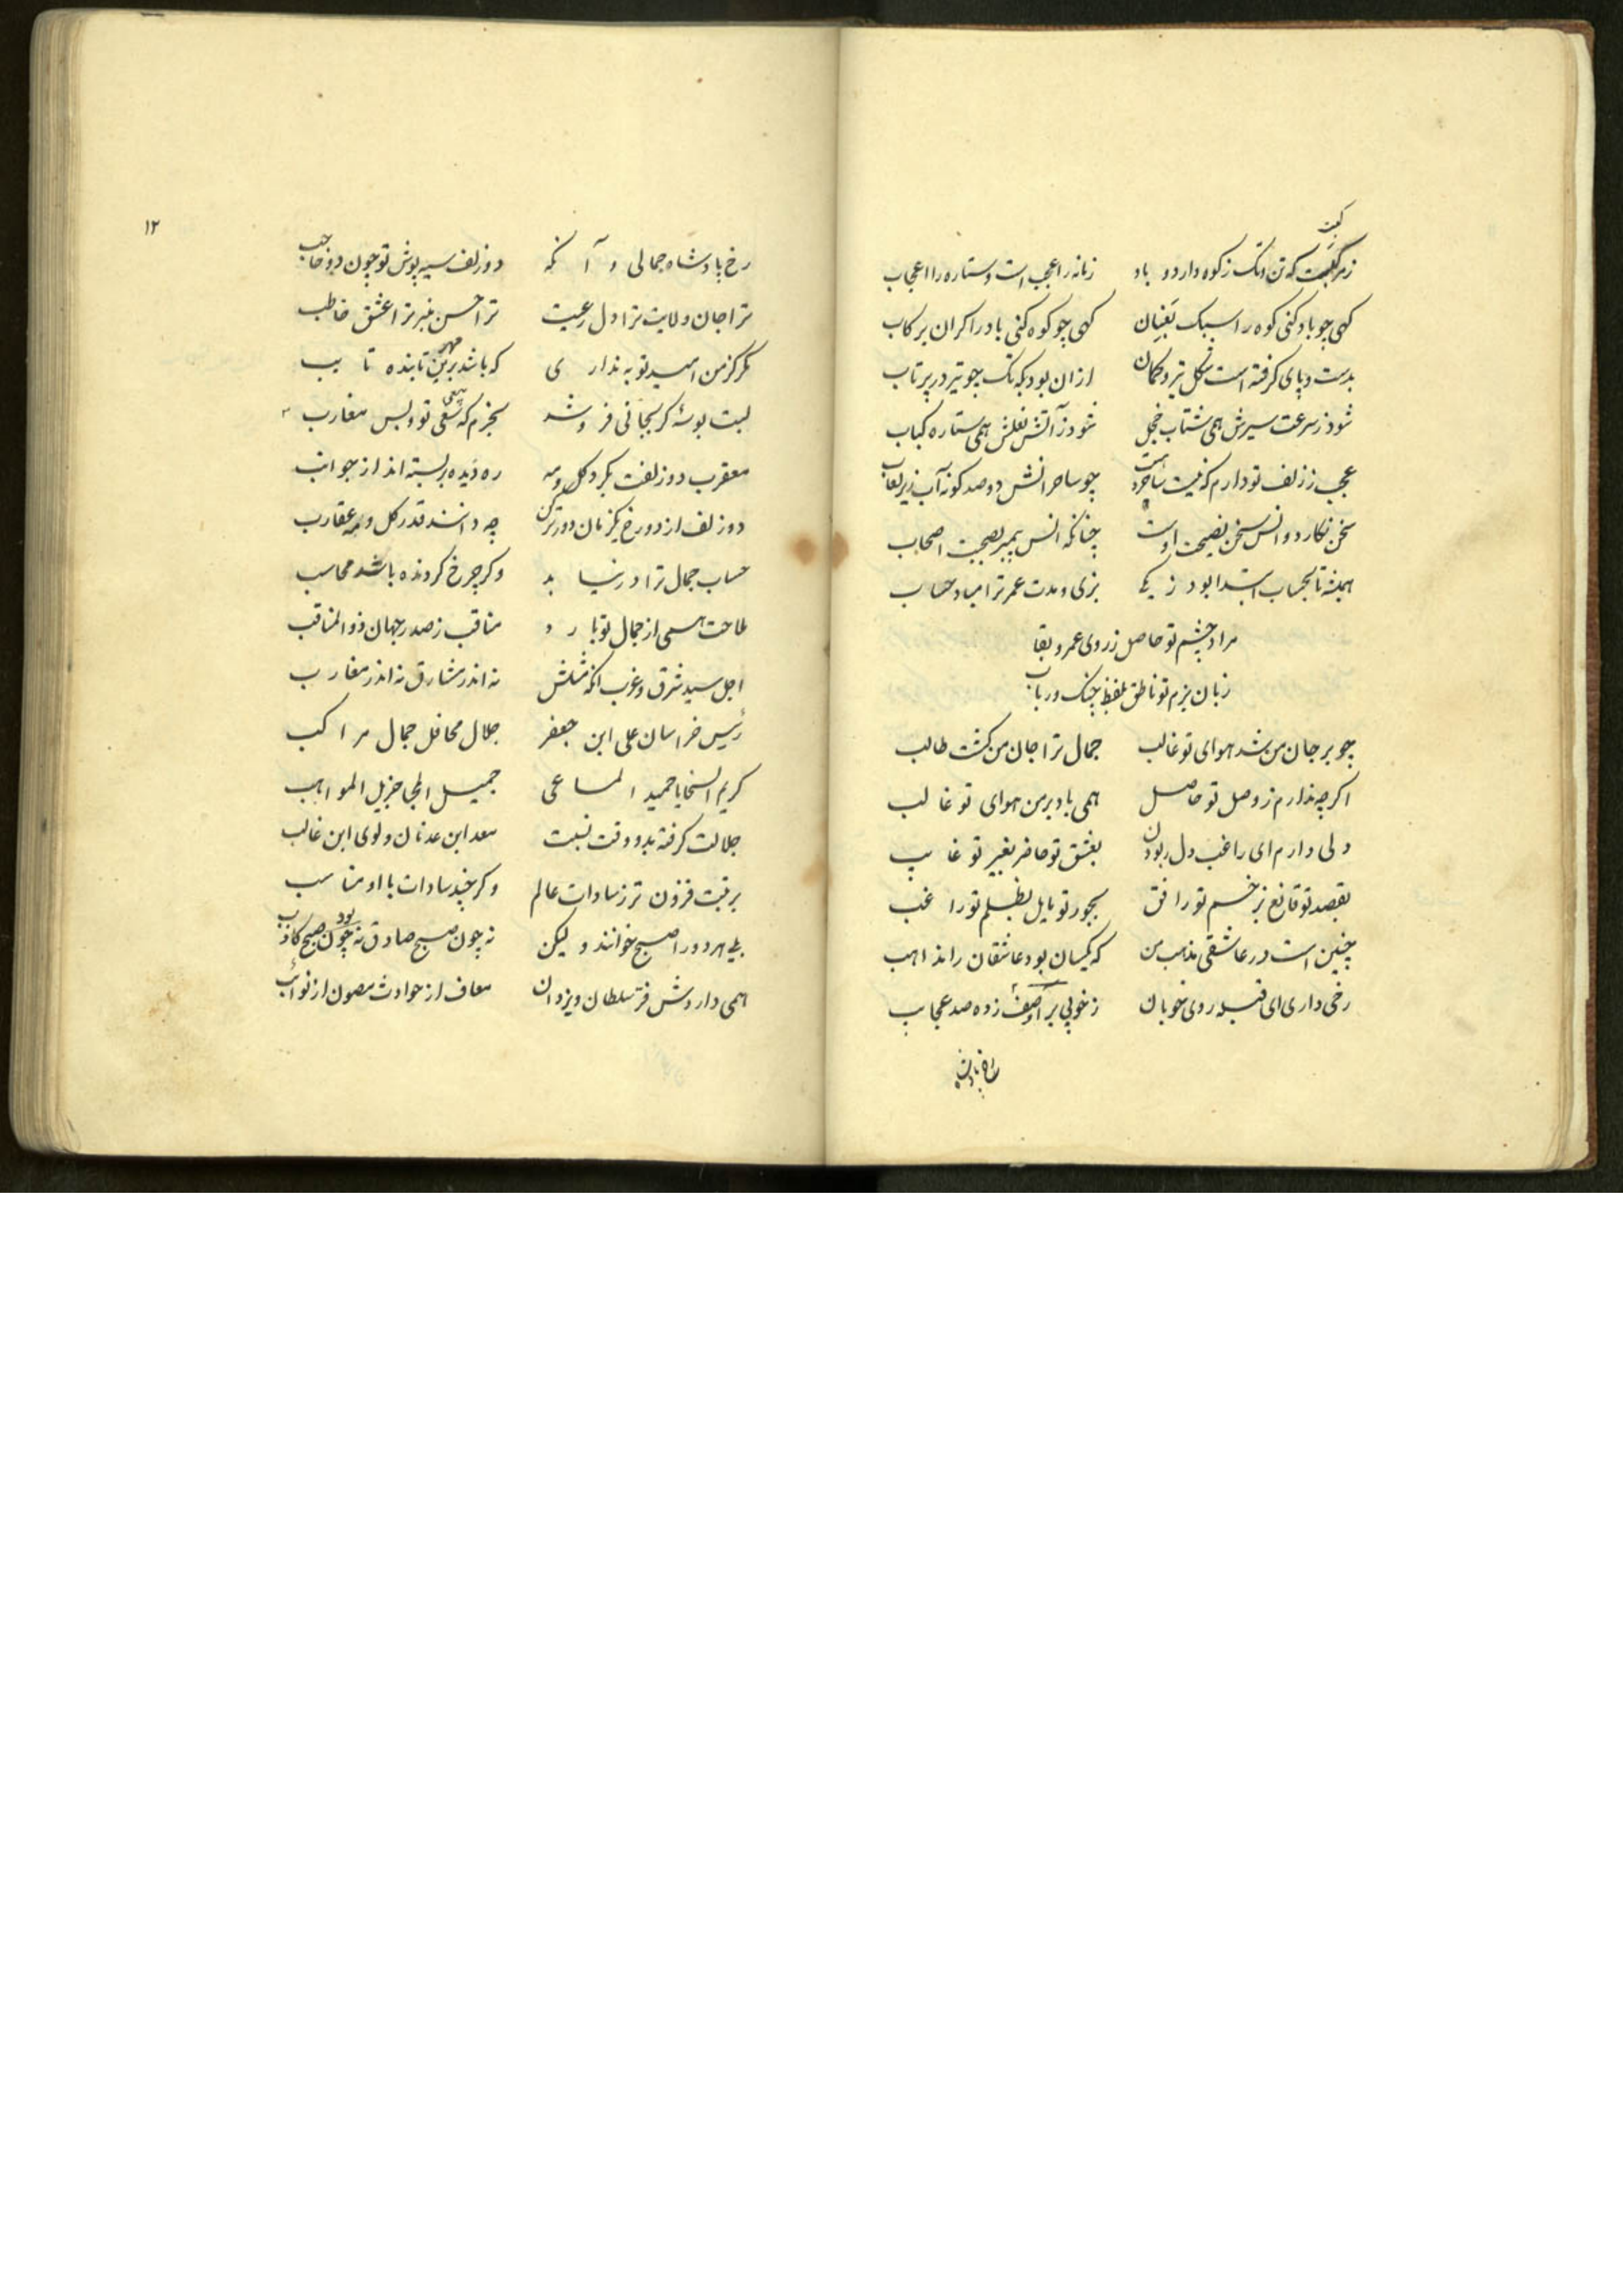 کمیت
زمرکبت که تن وتک زکوه دارد و باد زمانه را عجب است و ستاره را اعجاب
کهی چو باد کنی کوه را سبک بعنان کهی چو کوه کنی باد را کران برکاب
بدست و پای کرفته است شکل تیر و کمان ازان بود بکه تک چو تیر در پرتاب
شود ز سرعت سیرش همی شتاب خجل شود ز آتش نعلش همی ستاره کباب
عجب ز زلف تو دارم که نیست چو ساحرانش دو صد کونه آب زیر نقاب
سخن نکار د و انس سخن بفضیحت اوست چنانکه انس پیمبر بصحبت اصحاب
همیشه تا بحساب ابتدا بود ز یکی بزی و مدت عمر ترا مباد حساب
مراد چشم تو حاصل ز روی عمر و بقا
زبان بزم تو ناطق بلفظ چنک و رباب
چو بر جان من شد هوای تو غالب جمال ترا جان من کشت طالب
اکرچه ندارم ز وصل تو حاصل همی باد بر من هوای تو غالب
دلی دارم ای راغب دل ربودن بعشق تو حاضر بغیر تو غایب
بقصد تو قانع بزخم تو رافق بجور تو مایل بظلم تو راغب
چنین است در عاشقی مذهب من که یکسان بود عاشقان را مذاهب
رخی داری ای قبله روی خوبان ز خوبی بر او صف زده صد عجایب
۱۲
رخ پادشاه جمالی و آنکه دو زلف سیه پوش تو چون دو حاجب
ترا جان ولایت ترا دل رعیت ترا حسن منبر ترا عشق خاطب
مکر کز من امید توبه نداری که باشد برین تابنده تایب
مهر
لبت بوسه کر بجانی فروشد بخرم که سعی تو و بس مغارب
معقرب دو زلفت بکرد کل و مه ره دیده بر بسته اند از جوانب
دو زلف از دو رخ یکزمان دورتر کن چه دانند قدر کل و مه عقارب
حساب جمال ترا در نیابد وکر چرخ کردنده باشد محاسب
ملاحت همی از جمال تو بارد مناقب ز صدر جهان ذو المناقب
اجل سید شرق و غرب انکه مثلش نه اندر مشارق نه اندر مغارب
رئیس خراسان علی ابن جعفر جلال محافل جمال مراکب
کریم السخایا حمید المساعی جمیل المحیا جزیل المواهب
جلالت کرفته بدو وقت نسبت معد ابن عدنان و لوی ابن غالب
برتبت فزون تر ز سادات عالم وکر چند سادات با او مناسب
بلی هر دو را صبح خوانند و لیکن نه چون صبح صادق بود صبح کاذب
همی داردش فر سلطان و یزدان معاف از حوادث مصون از نوائب